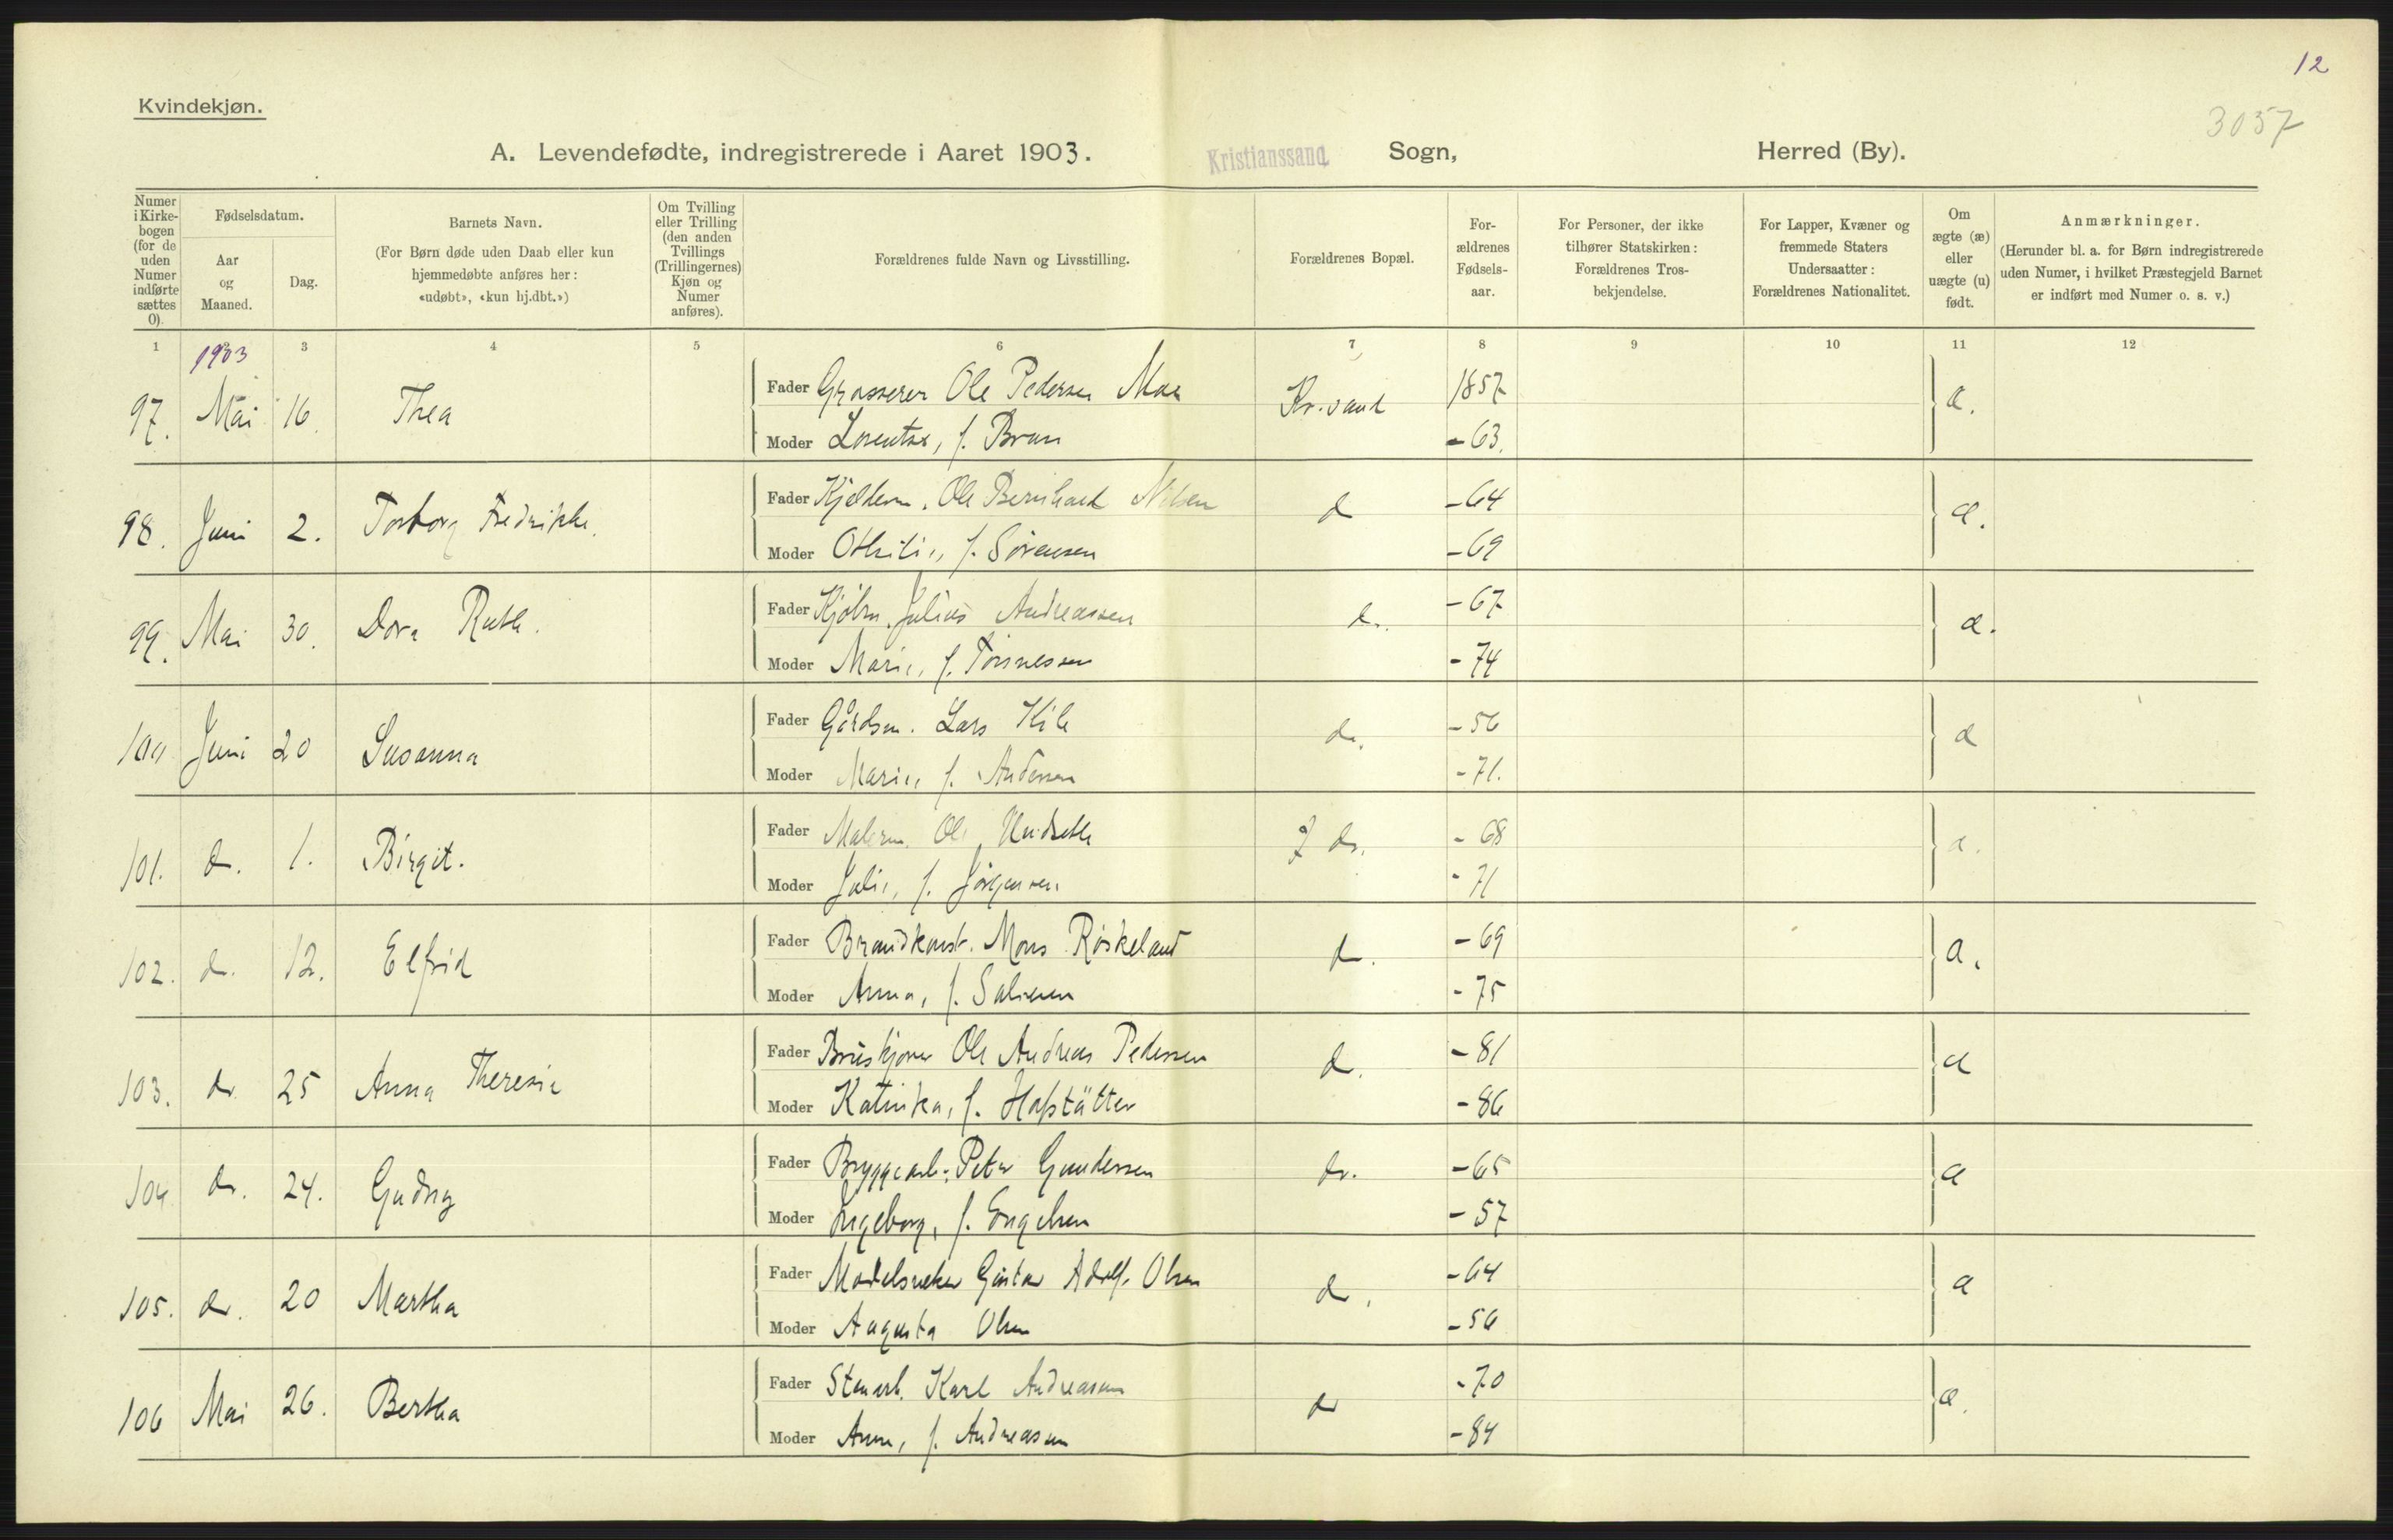 12
3057
Kvindekjøn.
A. Levendefødte, indregistrerede i Aaret 1903. Kristianssand Sogn, Herred (By).
Numer i Kirke-bogen (for de uden Numer indførte sættes 0).
Fødselsdatum.
Aar og Maaned.
Dag.
Barnets Navn.
(For Børn døde uden Daab eller kun hjemmedøbte anføres her: «udøbt», «kun hj.dbt.»)
Om Tvilling eller Trilling (den anden Tvillings (Trillingernes) Kjøn og Numer anføres).
Forældrenes fulde Navn og Livsstilling.
Forældrenes Bopæl.
For-ældrenes Fødsels-aar.
For Personer, der ikke tilhører Statskirken: Forældrenes Tros-bekjendelse.
For Lapper, Kvæner og fremmede Staters Undersaatter: Forældrenes Nationalitet.
Om ægte (æ) eller uægte (u) født.
Anmærkninger.
(Herunder bl. a. for Børn indregistrerede uden Numer, i hvilket Præstegjeld Barnet er indført med Numer o. s. v.)
1 2 3 4 5 6 7 8 9 10 11 12
1903
97. Mai 16. Thea Fader Grosserer Ole Pedersen Moe Kr.sand 1857 æ.
Moder Lorentze, f. Brun - 63.
98. Juni 2. Torborg Fredrikke. Fader Kjelderm. Ole Bernhard Nilsen d - 64 æ.
Moder Othilie, f. Sørensen - 69
99. Mai 30. Dora Ruth. Fader Kjøbm. Julius Andreassen do. - 67 æ.
Moder Marie, f. Tønnessen - 74
100 Juni 20 Susanna Fader Gårdsm. Lars Kile do. - 56 æ
Moder Marie, f. Andersen - 71.
101. d. 1. Birgit. Fader Malerm. Ole Hundseth do. - 68 æ.
Moder Julie, f. Jörgensen - 71
102. d. 12. Elfrid Fader Brandkonst. Mons Røskeland d. - 69 æ.
Moder Anna, f. Salvesen - 75
103. do 25 Anna Theresie Fader Ole Andreas Pedersen d. - 81 æ
Moder Katinka, f. Hofstätter - 86
104 do. 24. Gudny Fader Bryggearb. Peter Gundersen do. - 65 æ
Moder Ingeborg, f. Engelsen - 57
105. do. 20 Martha Fader Modelsneker Gustav Adolf Olsen do. - 64 æ
Moder Augusta Olsen - 56
106 Mai 26. Bertha Fader Stenarb. Karl Andreasen do - 70 æ.
Moder Anne, f. Andreasen - 84